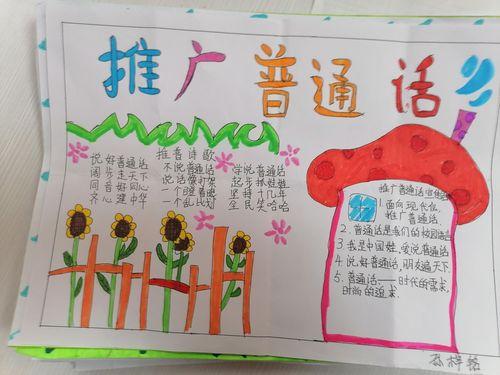 推广普通话
推普诗歌
说好普通话
阔步走天下
同音好同心
齐心建中华
不说普通话
说话像打架
一个瞪着眼
一个乱比划
学说普通话
起步抓娃娃
坚持十几年
全民笑哈哈
推广普通话宣传语
1.面向现代化,
推广普通话.
2.普通话是我们的校园语言
3.我是中国娃,爱说普通话
4.说好普通话,朋友遍天下.
5.普通话——时代的需求,
时尚的追求.